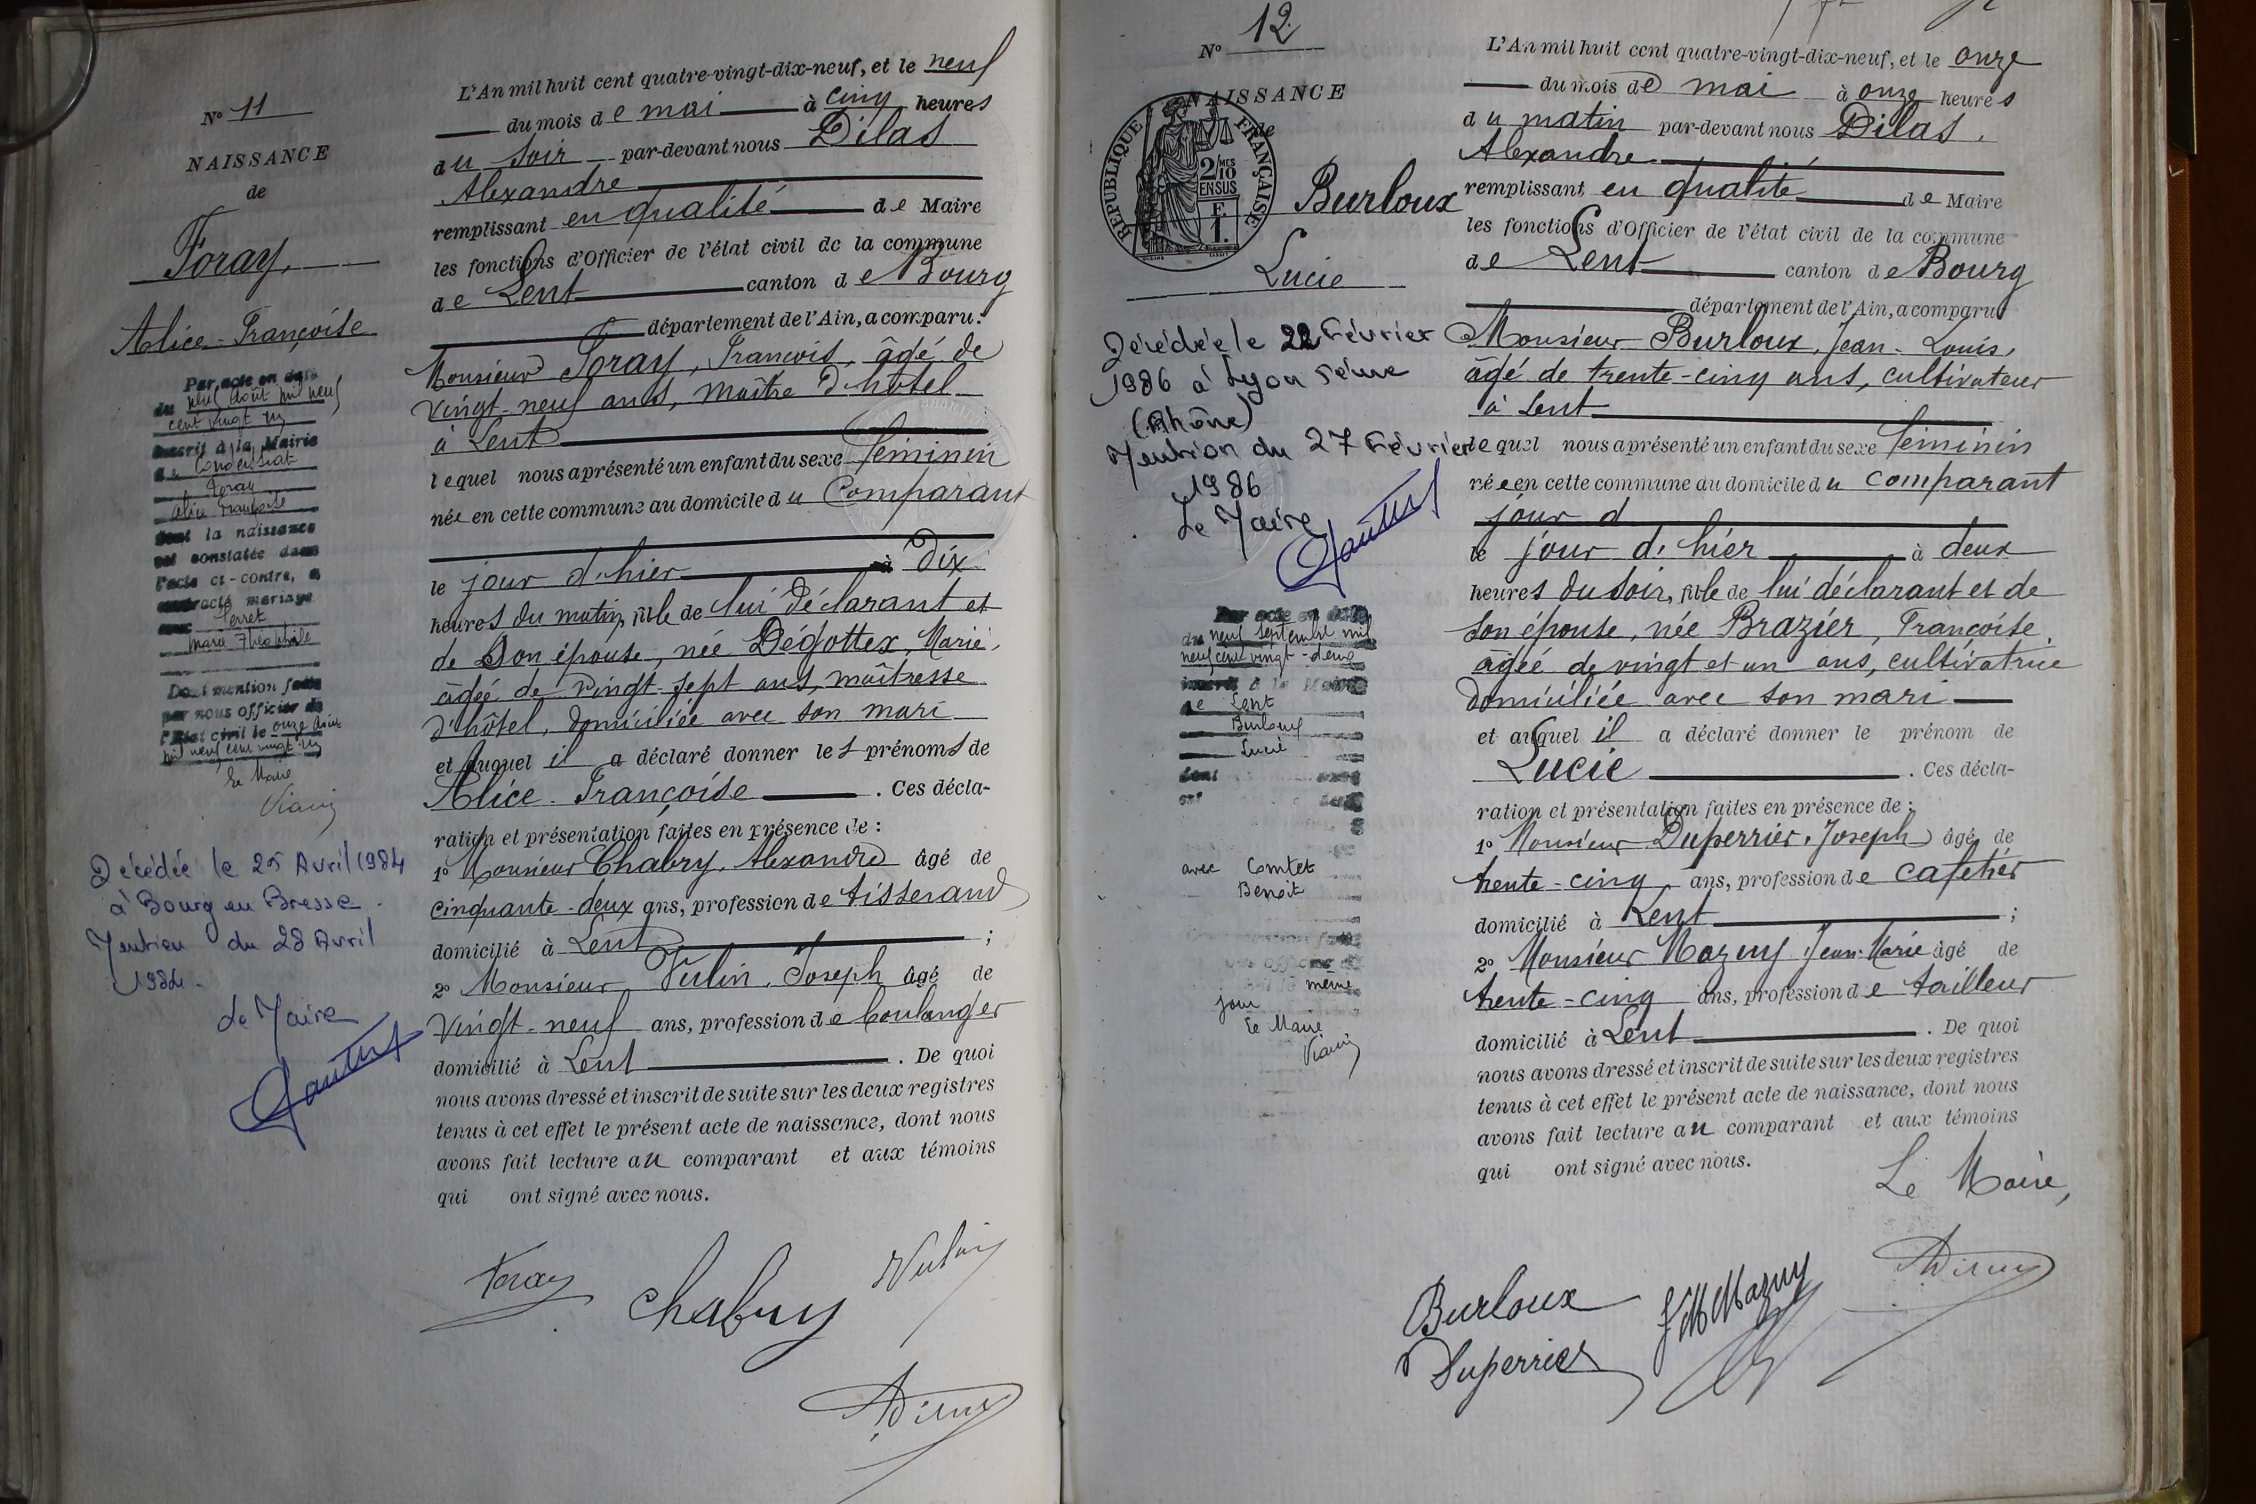 N° 11
NAISSANCE
de
Foray,
Alice-Françoise
Par acte en date
du neuf Août mil neuf
cent vingt un
inscrit à la Mairie
de Condeissiat
Foray
Alice Françoise
dont la naissance
est constatée dans
l'acte ci-contre, a
contracté mariage
avec Perret
Marie Théophile
Dont mention faite
par nous officier de
l'Etat civil le onze Août
mil neuf cent vingt un
Le Maire
Décédée le 25 Avril 1984
à Bourg en Bresse.
Mention du 28 Avril
1984.
Le Maire
L'An mil huit cent quatre-vingt-dix-neuf, et le neuf
du mois de mai à cinq heures
du soir par-devant nous Dilas
Alexandre
remplissant en qualité de Maire
les fonctions d'Officier de l'état civil de la commune
de Lent canton de Bourg
département de l'Ain, a comparu:
Monsieur Foray, François, âgé de
vingt-neuf ans, maître d'hôtel
à Lent
lequel nous a présenté un enfant du sexe féminin
née en cette commune au domicile du Comparant
le jour d'hier à dix
heures du matin, fille de lui déclarant et
de son épouse, née Dégottex, Marie,
âgée de vingt-sept ans, maîtresse
d'hôtel, domiciliée avec son mari
et auquel il a déclaré donner les prénoms de
Alice-Françoise . Ces décla-
ration et présentation faites en présence de :
1° Monsieur Chabry, Alexandre âgé de
cinquante-deux ans, profession de tisserand
domicilié à Lent ;
2° Monsieur Vulin, Joseph âgé de
vingt-neuf ans, profession de boulanger
domicilié à Lent . De quoi
nous avons dressé et inscrit de suite sur les deux registres
tenus à cet effet le présent acte de naissance, dont nous
avons fait lecture au comparant et aux témoins
qui ont signé avec nous.
Foray
Chabry
Vulin
N° 12
NAISSANCE
de
REPUBLIQUE FRANÇAISE
2/MES
10
EN SUS
F
1.
Burloux
Lucie
Décédée le 22 Février
1986 à Lyon 5ème
(Rhône)
Mention du 27 Février
1986
Le Maire
Par acte en date
du neuf septembre mil
neuf cent vingt-deux
inscrit à la Mairie
de Lent
Burloux
Lucie
dont
est
avec Comtet
Benoit
même
jour
Le Maire
L'An mil huit cent quatre-vingt-dix-neuf, et le onze
du mois de mai à onze heures
du matin par-devant nous Dilas,
Alexandre
remplissant en qualité de Maire
les fonctions d'Officier de l'état civil de la commune
de Lent canton de Bourg
département de l'Ain, a comparu
Monsieur Burloux, Jean-Louis,
âgé de trente-cinq ans, cultivateur
à Lent
lequel nous a présenté un enfant du sexe féminin
née en cette commune au domicile du comparant
jour d
le jour d'hier à deux
heures du soir, fille de lui déclarant et de
son épouse, née Brazier, Françoise,
âgée de vingt et un ans, cultivatrice
domiciliée avec son mari
et auquel il a déclaré donner le prénom de
Lucie . Ces décla-
ration et présentation faites en présence de :
1° Monsieur Duperrier, Joseph âgé de
trente-cinq ans, profession de cafetier
domicilié à Lent ;
2° Monsieur Mazuy Jean-Marie âgé de
trente-cinq ans, profession de tailleur
domicilié à Lent . De quoi
nous avons dressé et inscrit de suite sur les deux registres
tenus à cet effet le présent acte de naissance, dont nous
avons fait lecture au comparant et aux témoins
qui ont signé avec nous.
Le Maire,
Burloux
JM Mazuy
Duperrier